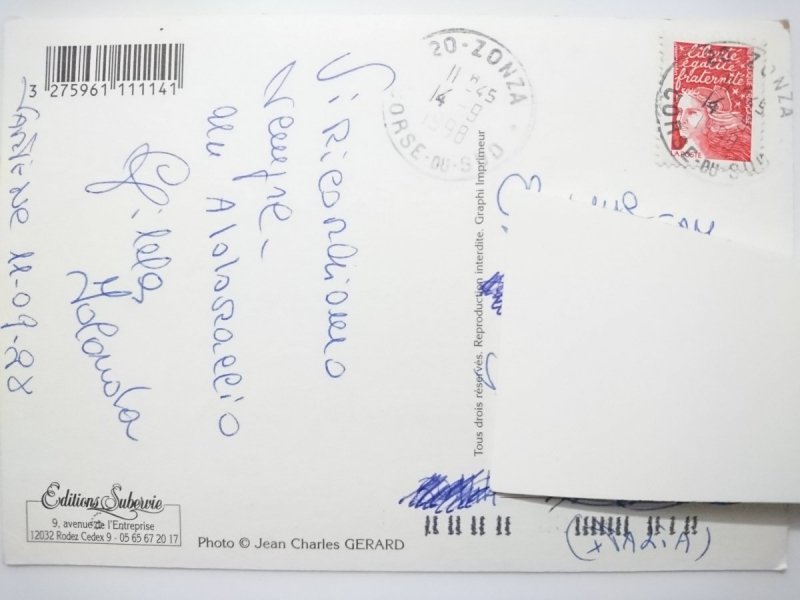 3 275961 111141
Vi Ricordiamo
sempre
un Abbraccio
Gisella
Iolanda
11-09-98
20-ZONZA
11 H 45
14 - 9
1998
CORSE-DU-SUD
liberté
égalité
fraternité
LA POSTE
ZONZA
14
CORSE-DU-SUD
Tous droits réservés. Reproduction interdite. Graphi Imprimeur
Editions Subervie
9, avenue de l'Entreprise
12032 Rodez Cedex 9 - 05 65 67 20 17
Photo © Jean Charles GERARD
(ITALIA)